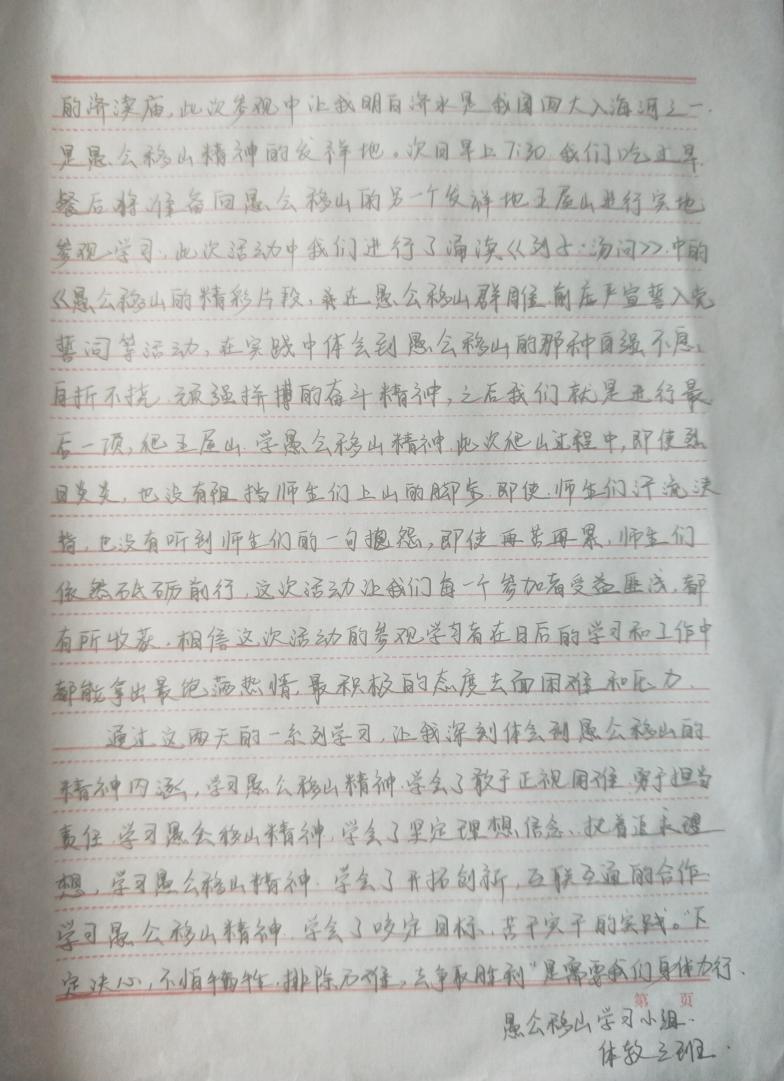 的济渎庙，此次参观中让我明白济水是我国四大入海河之一.
是愚公移山精神的发祥地。次日早上7:30.我们吃过早
餐后将准备回愚公移山的另一个发祥地王屋山进行实地
参观学习.此次活动中我们进行了诵读《列子·汤问》中的
《愚公移山的精彩片段，并在愚公移山群雕前庄严宣誓入党
誓词等活动，在实践中体会到愚公移山的那种自强不息、
百折不挠.顽强拼搏的奋斗精神，之后我们就是进行最
后一项，爬王屋山.学愚公移山精神.此次爬山过程中，即使烈
日炎炎，也没有阻挡师生们上山的脚步.即使.师生们汗流浃
背，也没有听到师生们的一句抱怨，即使再苦再累，师生们
依然砥砺前行，这次活动让我们每一个参加者受益匪浅，都
有所收获.相信这次活动的参观学习者在日后的学习和工作中
都能拿出最饱满热情.最积极的态度去面困难和压力.
通过这两天的一系列学习，让我深刻体会到愚公移山的
精神内涵，学习愚公移山精神.学会了敢于正视困难.勇于担当
责任.学习愚公移山精神，学会了坚定理想信念、执着追求理
想，学习愚公移山精神.学会了开拓创新，互联互通的合作.
学习愚公移山精神.学会了咬定目标、苦干实干的实践。“下
定决心，不怕牺牲，排除万难，去争取胜利”是需要我们身体力行.
第 页
愚公移山学习小组.
体教三班.